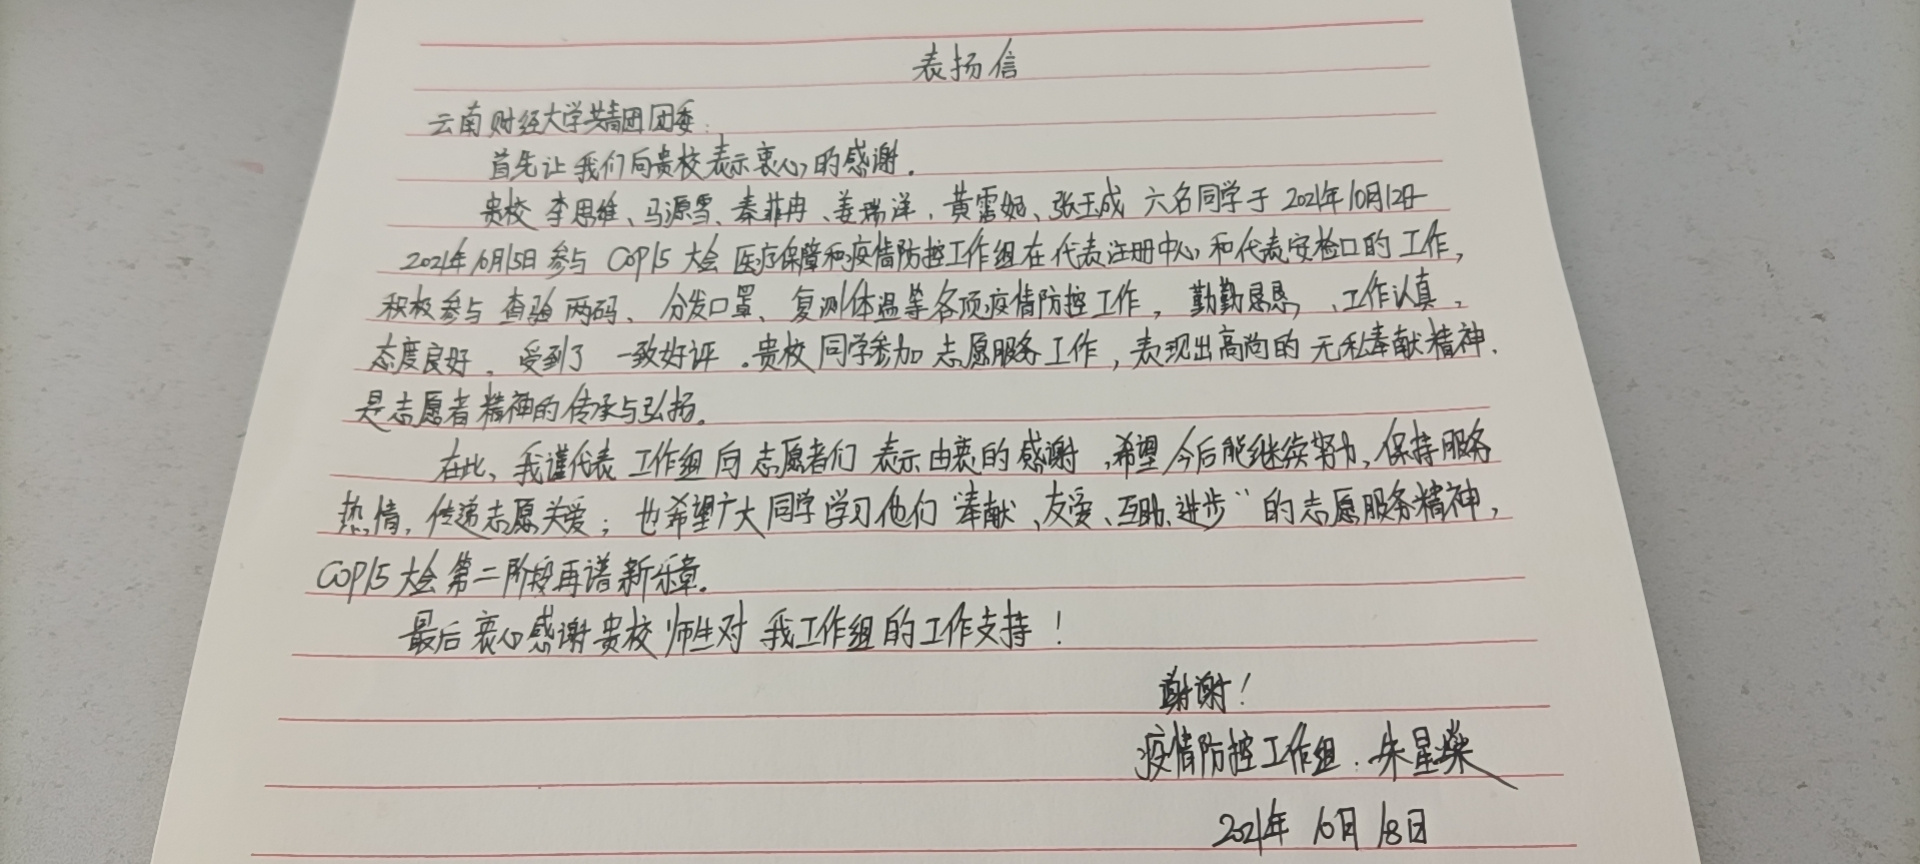 表扬信
云南财经大学共青团团委：
首先让我们向贵校表示衷心的感谢。
贵校 李思维、马源雪、秦菲冉、姜瑞洋、黄雪妮、张玉成 六名同学于 2021年10月12日-
2021年10月15日参与 COP15 大会 医疗保障和疫情防控工作组在代表注册中心和代表安检口的工作，
积极参与 查验两码、分发口罩、复测体温等各项疫情防控工作，勤勤恳恳、工作认真、
态度良好，受到了一致好评。贵校同学参加志愿服务工作，表现出高尚的无私奉献精神，
是志愿者精神的传承与弘扬。
在此，我谨代表 工作组向志愿者们表示由衷的感谢，希望今后能继续努力，保持服务
热情，传递志愿关爱；也希望广大同学学习他们“奉献、友爱、互助、进步”的志愿服务精神，
COP15大会第二阶段再谱新乐章。
最后衷心感谢贵校师生对我工作组的工作支持！
谢谢！
疫情防控工作组：朱星燊
2021年10月18日